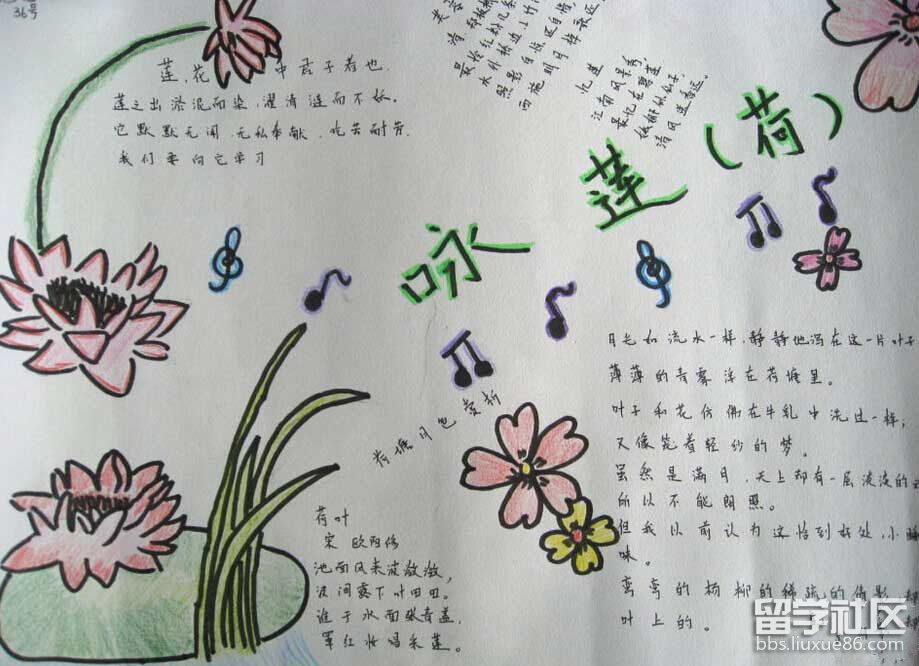 36号
莲,花 中君子者也.
莲之出淤泥而染,濯清涟而不妖.
它默默无闻,无私奉献,吃苦耐劳.
我们要向它学习
咏莲
江南风景秀
最忆在碧莲
清风送香远。
咏莲(荷)
荷塘月色赏析
荷叶
宋 欧阳修
池面风来波潋潋,
波间露下叶田田。
谁于水面张青盖,
罩红妆唱采莲。
月光如流水一样,静静地泻在这一片叶子
薄薄的青雾浮在荷塘里。
叶子和花仿佛在牛乳中洗过一样;
又像笼着轻纱的梦。
虽然是满月,天上却有一层淡淡的云
所以不能朗照。
但我以前认为这恰到好处,小睡
味。
弯弯的杨柳的稀疏的倩影,却
叶上的。
留学社区
bbs.liuxue86.com